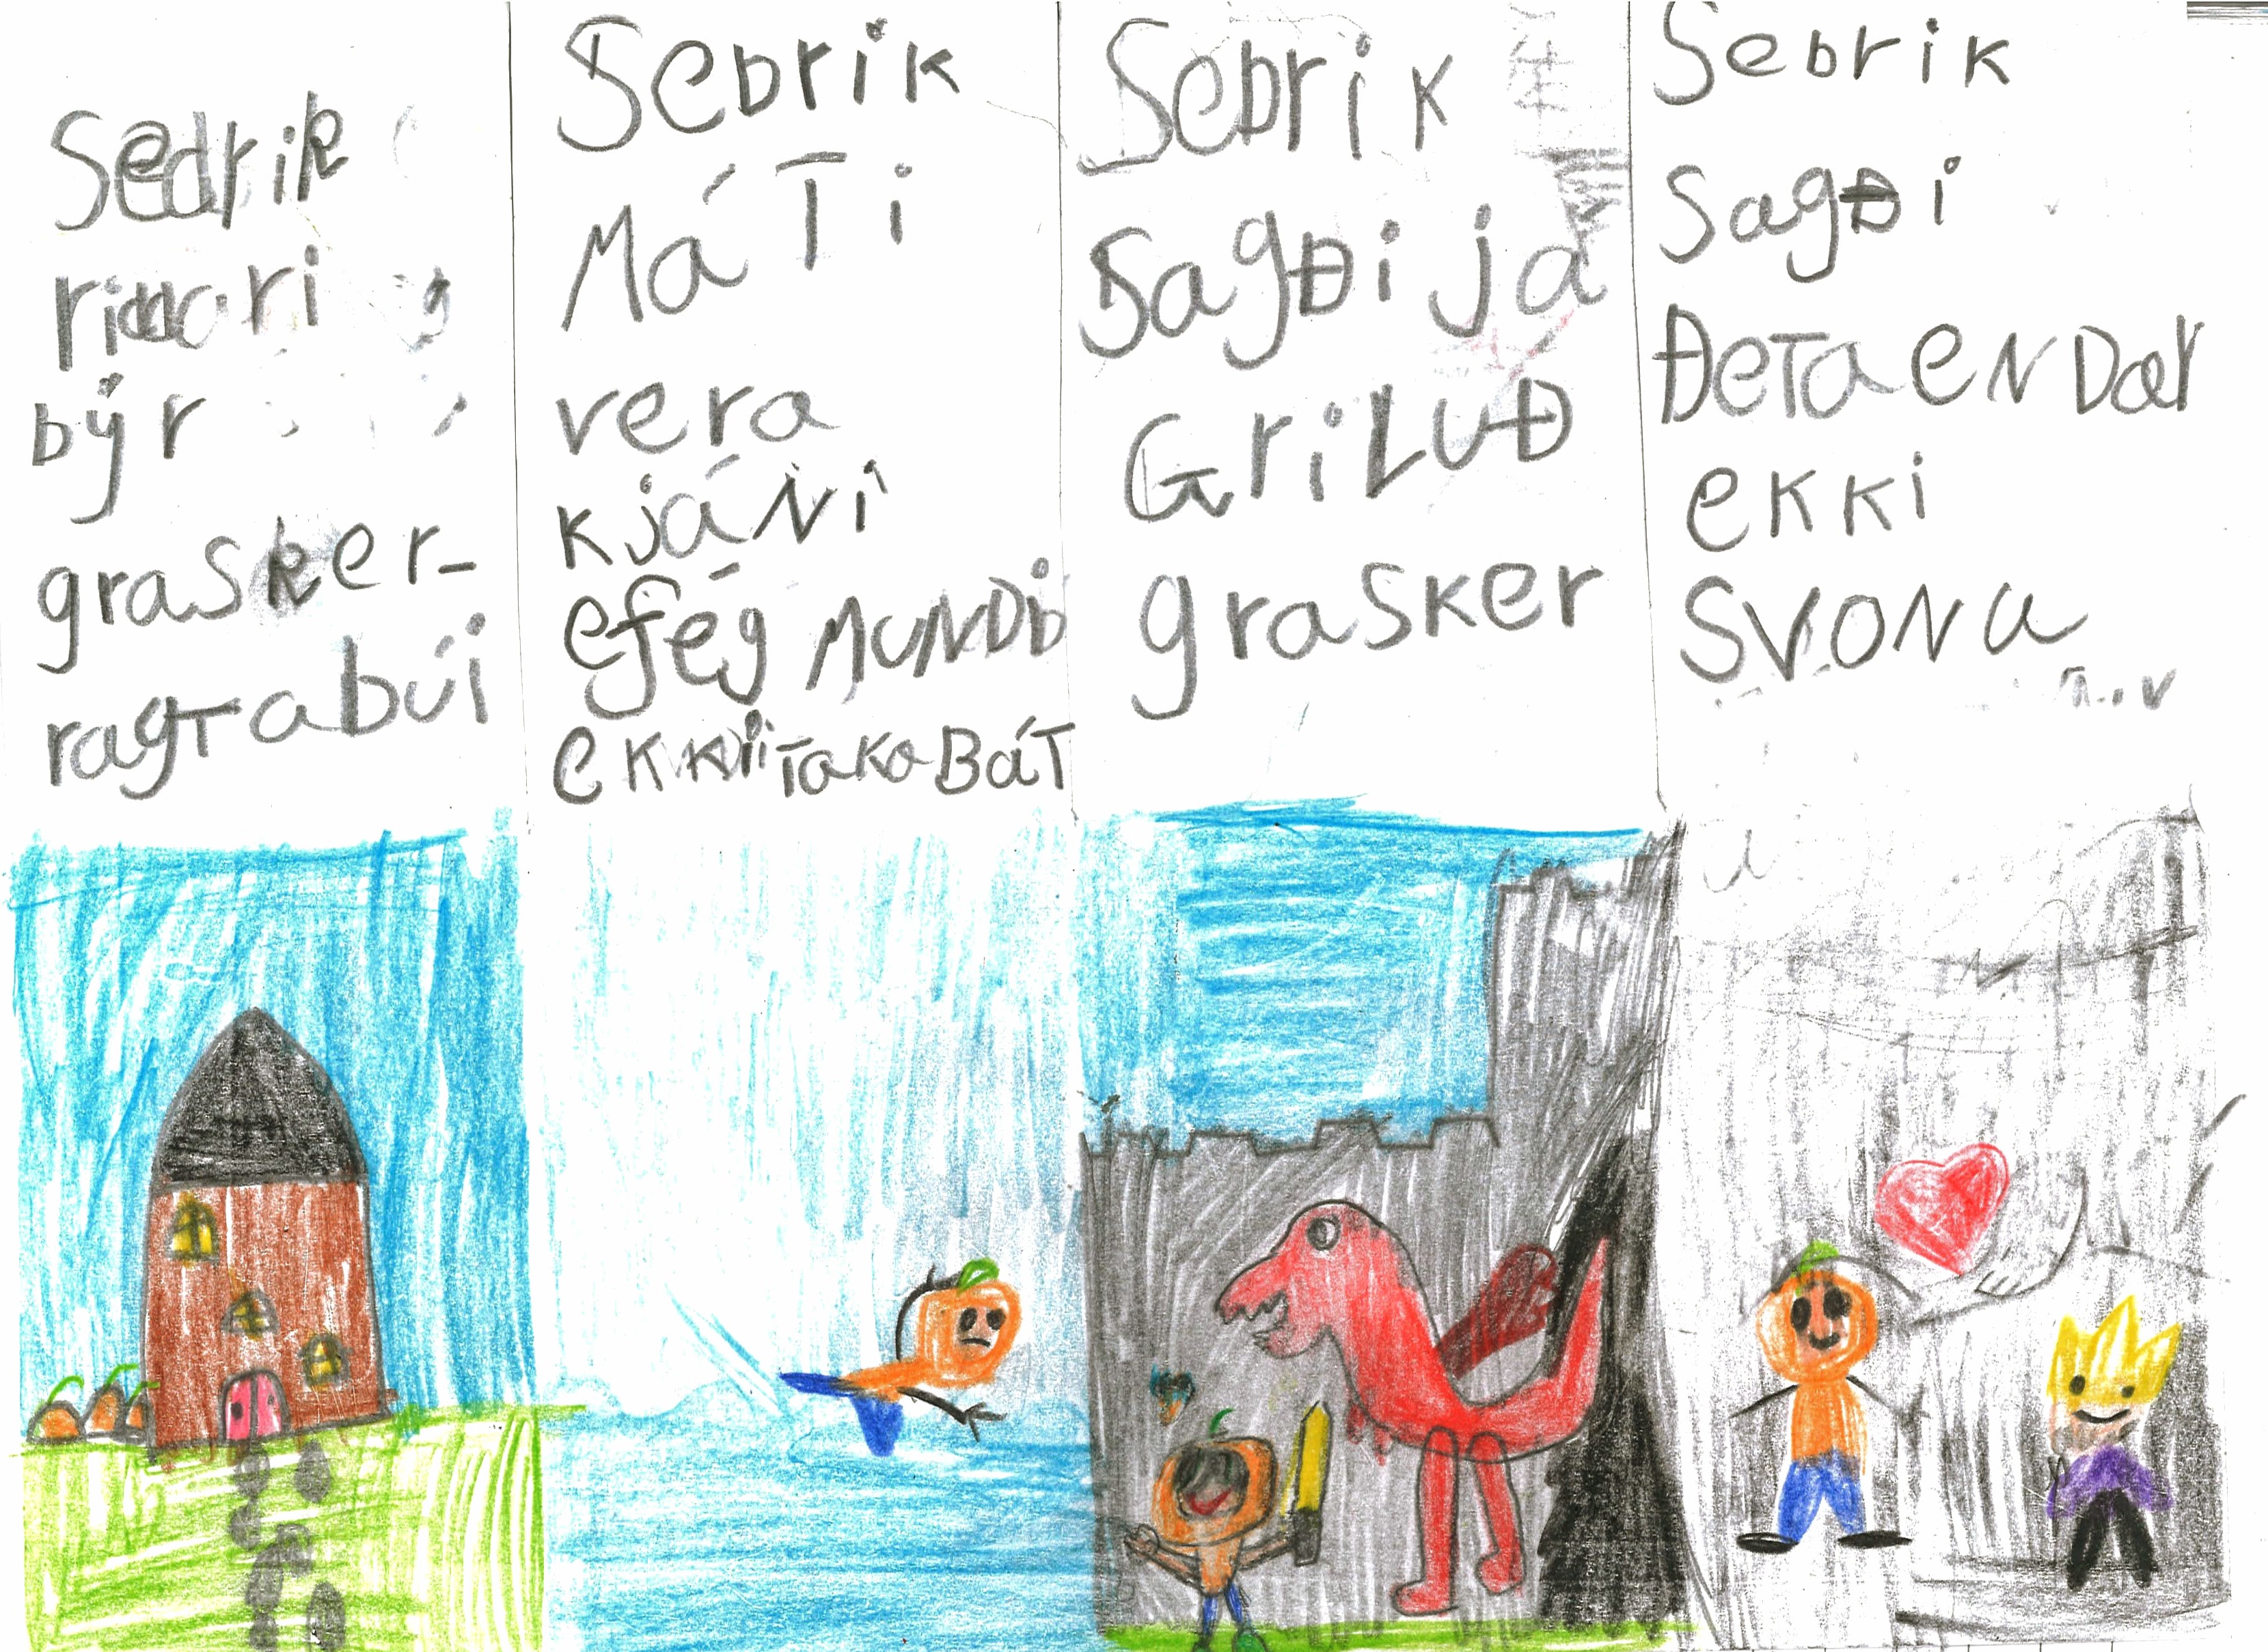 Sedrik
riddari
býr
grasker-
ragtabúi
Sedrik
MáTi
vera
kjáNi
ef ég MUNDi
ekki Taka BáT
Sedrik
SagÐi já
GriLUÐ
grasker
Sedrik
SagÐi
ÐeTa eNDar
ekki
SVONa